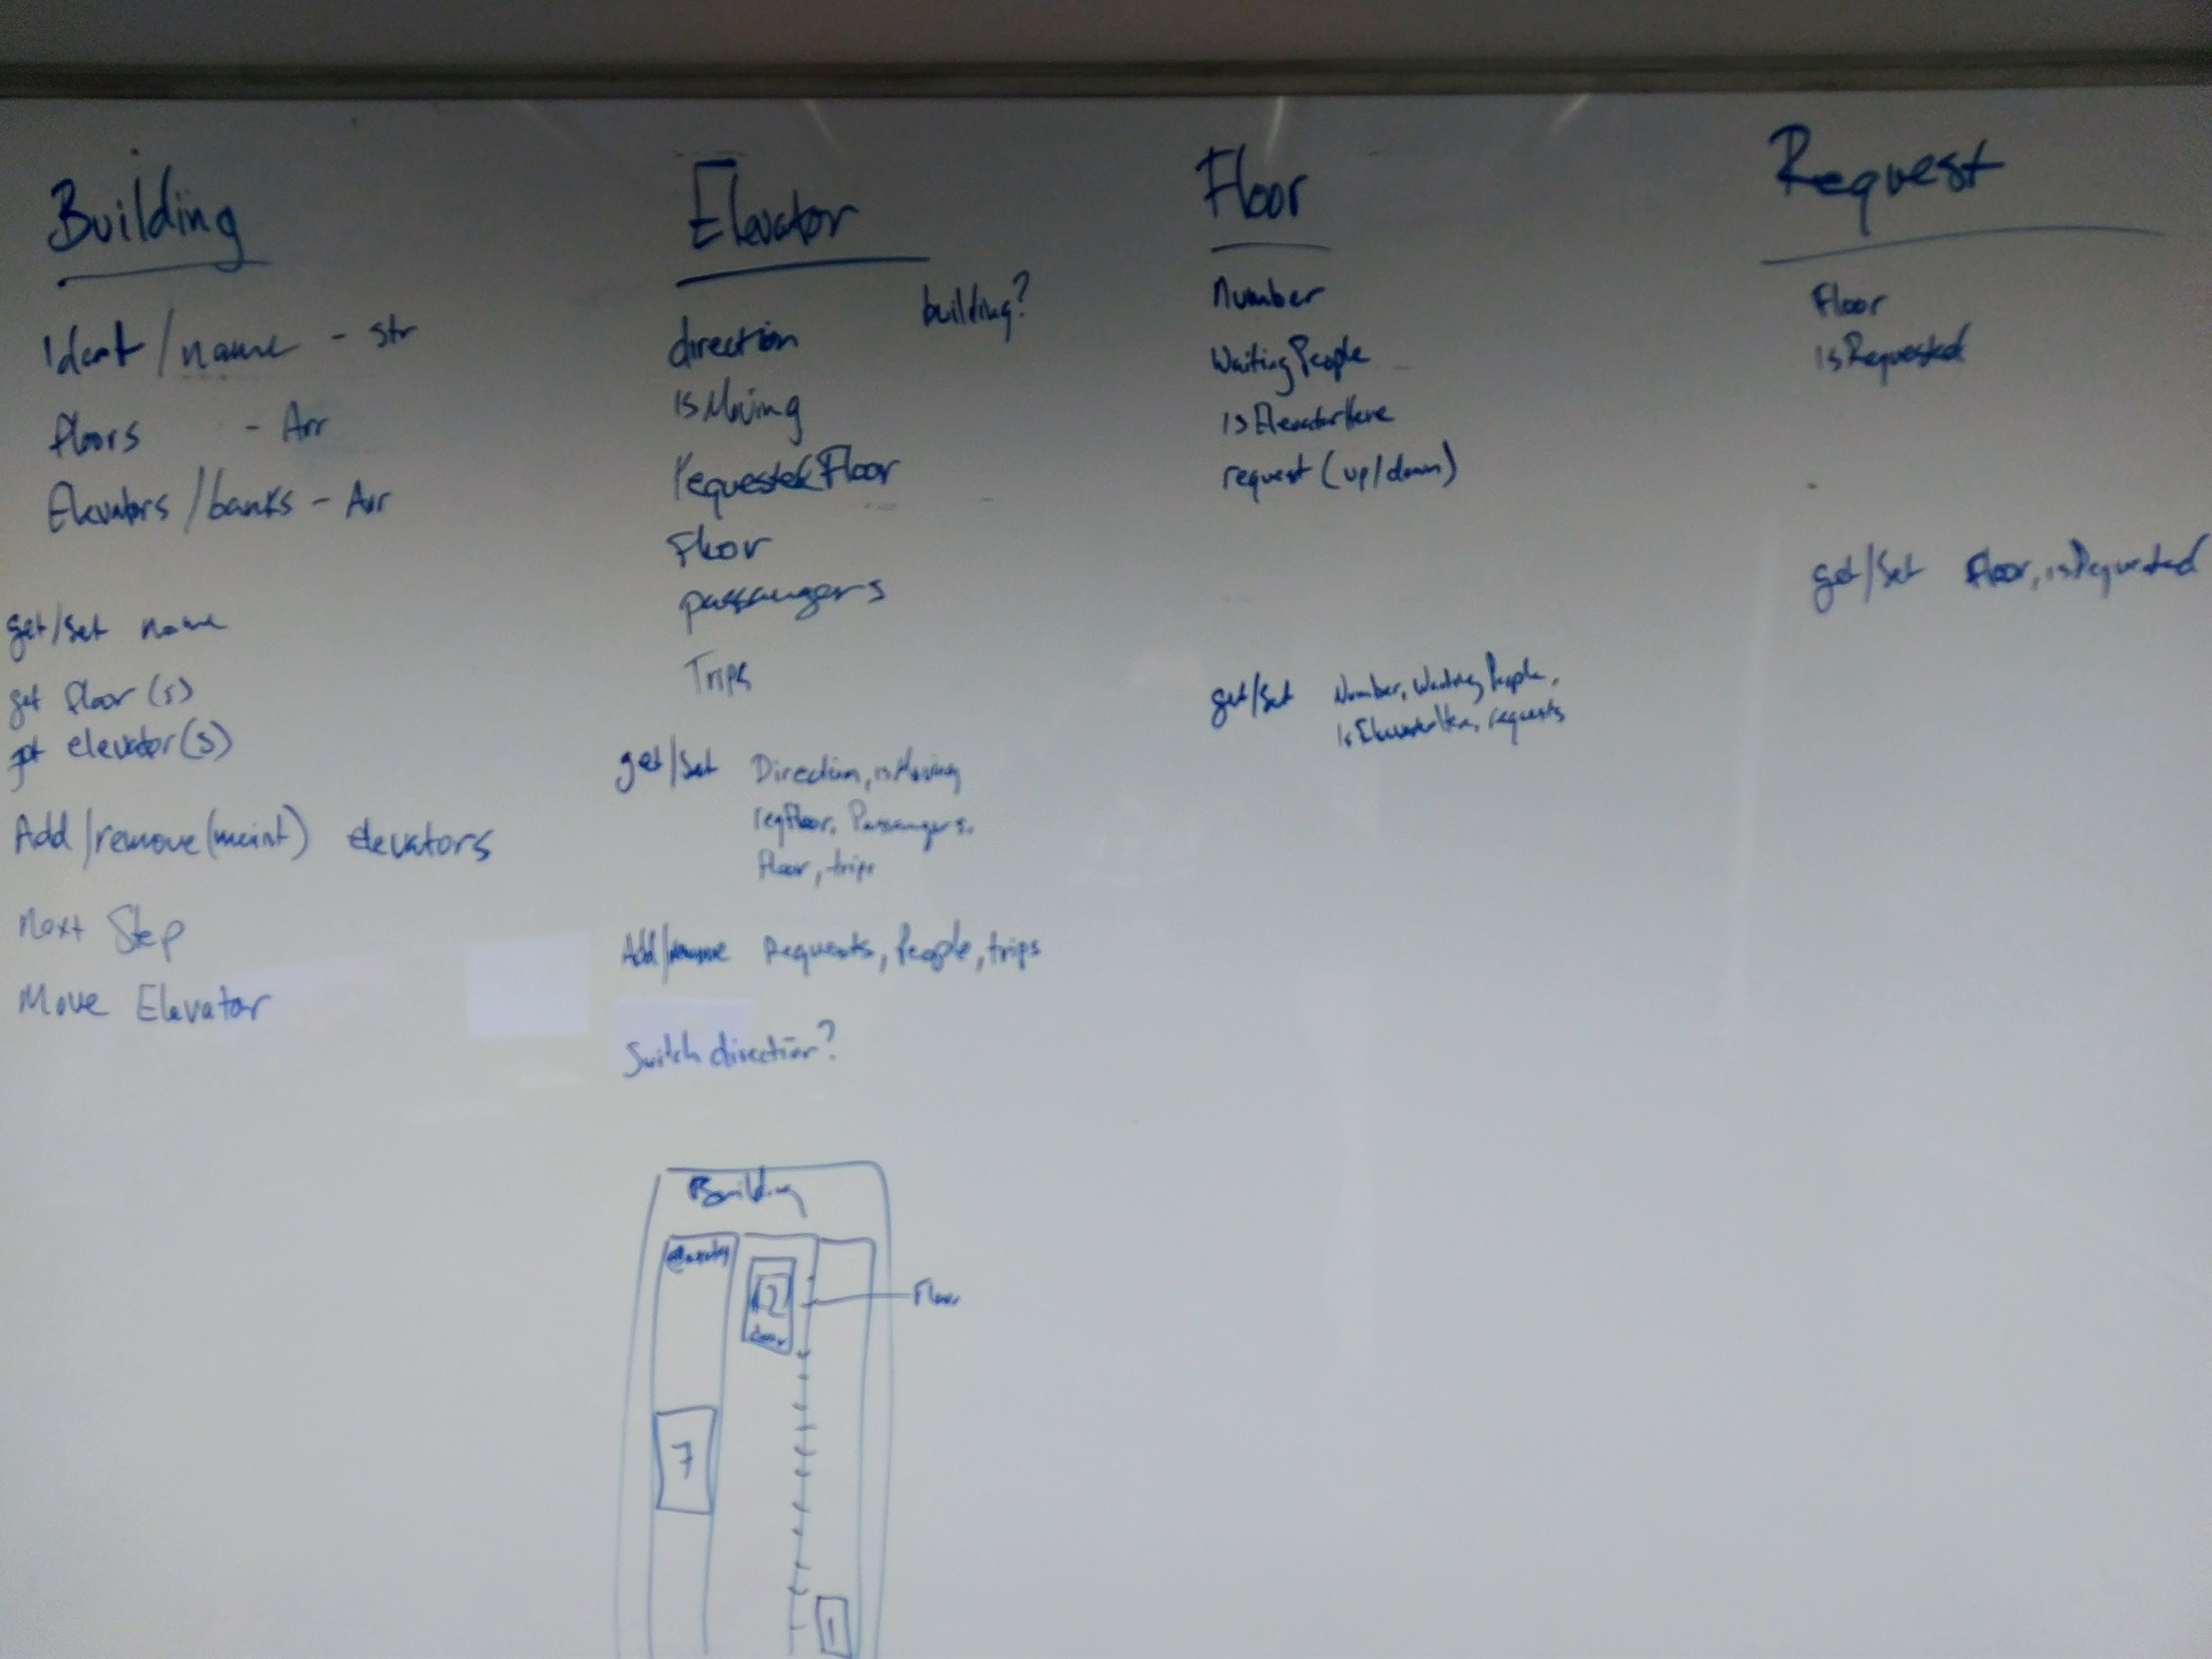 Building
Ident/name - str
floors - Arr
Elevators/banks - Arr
get/set name
get floor(s)
get elevator(s)
Add/remove(maint) elevators
Next Step
Move Elevator
Elevator
building?
direction
isMoving
requestedFloor
Floor
passangers
Trips
get/set Direction, isMoving
reqFloor, Passangers,
floor, trips
Add/remove Requests, People, trips
Switch direction?
Floor
Number
WaitingPeople
isElevatorHere
request (up/down)
get/set Number, WaitingPeople,
IsElevatorHere, requests
Request
Floor
isRequested
get/set floor, isRequested
Building
12
Floor
7
1